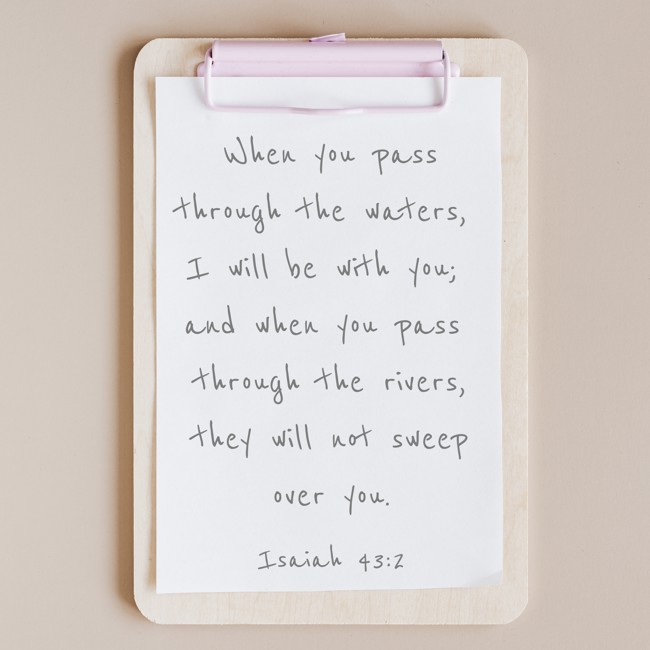 When you pass
through the waters,
I will be with you;
and when you pass
through the rivers,
they will not sweep
over you.
Isaiah 43:2